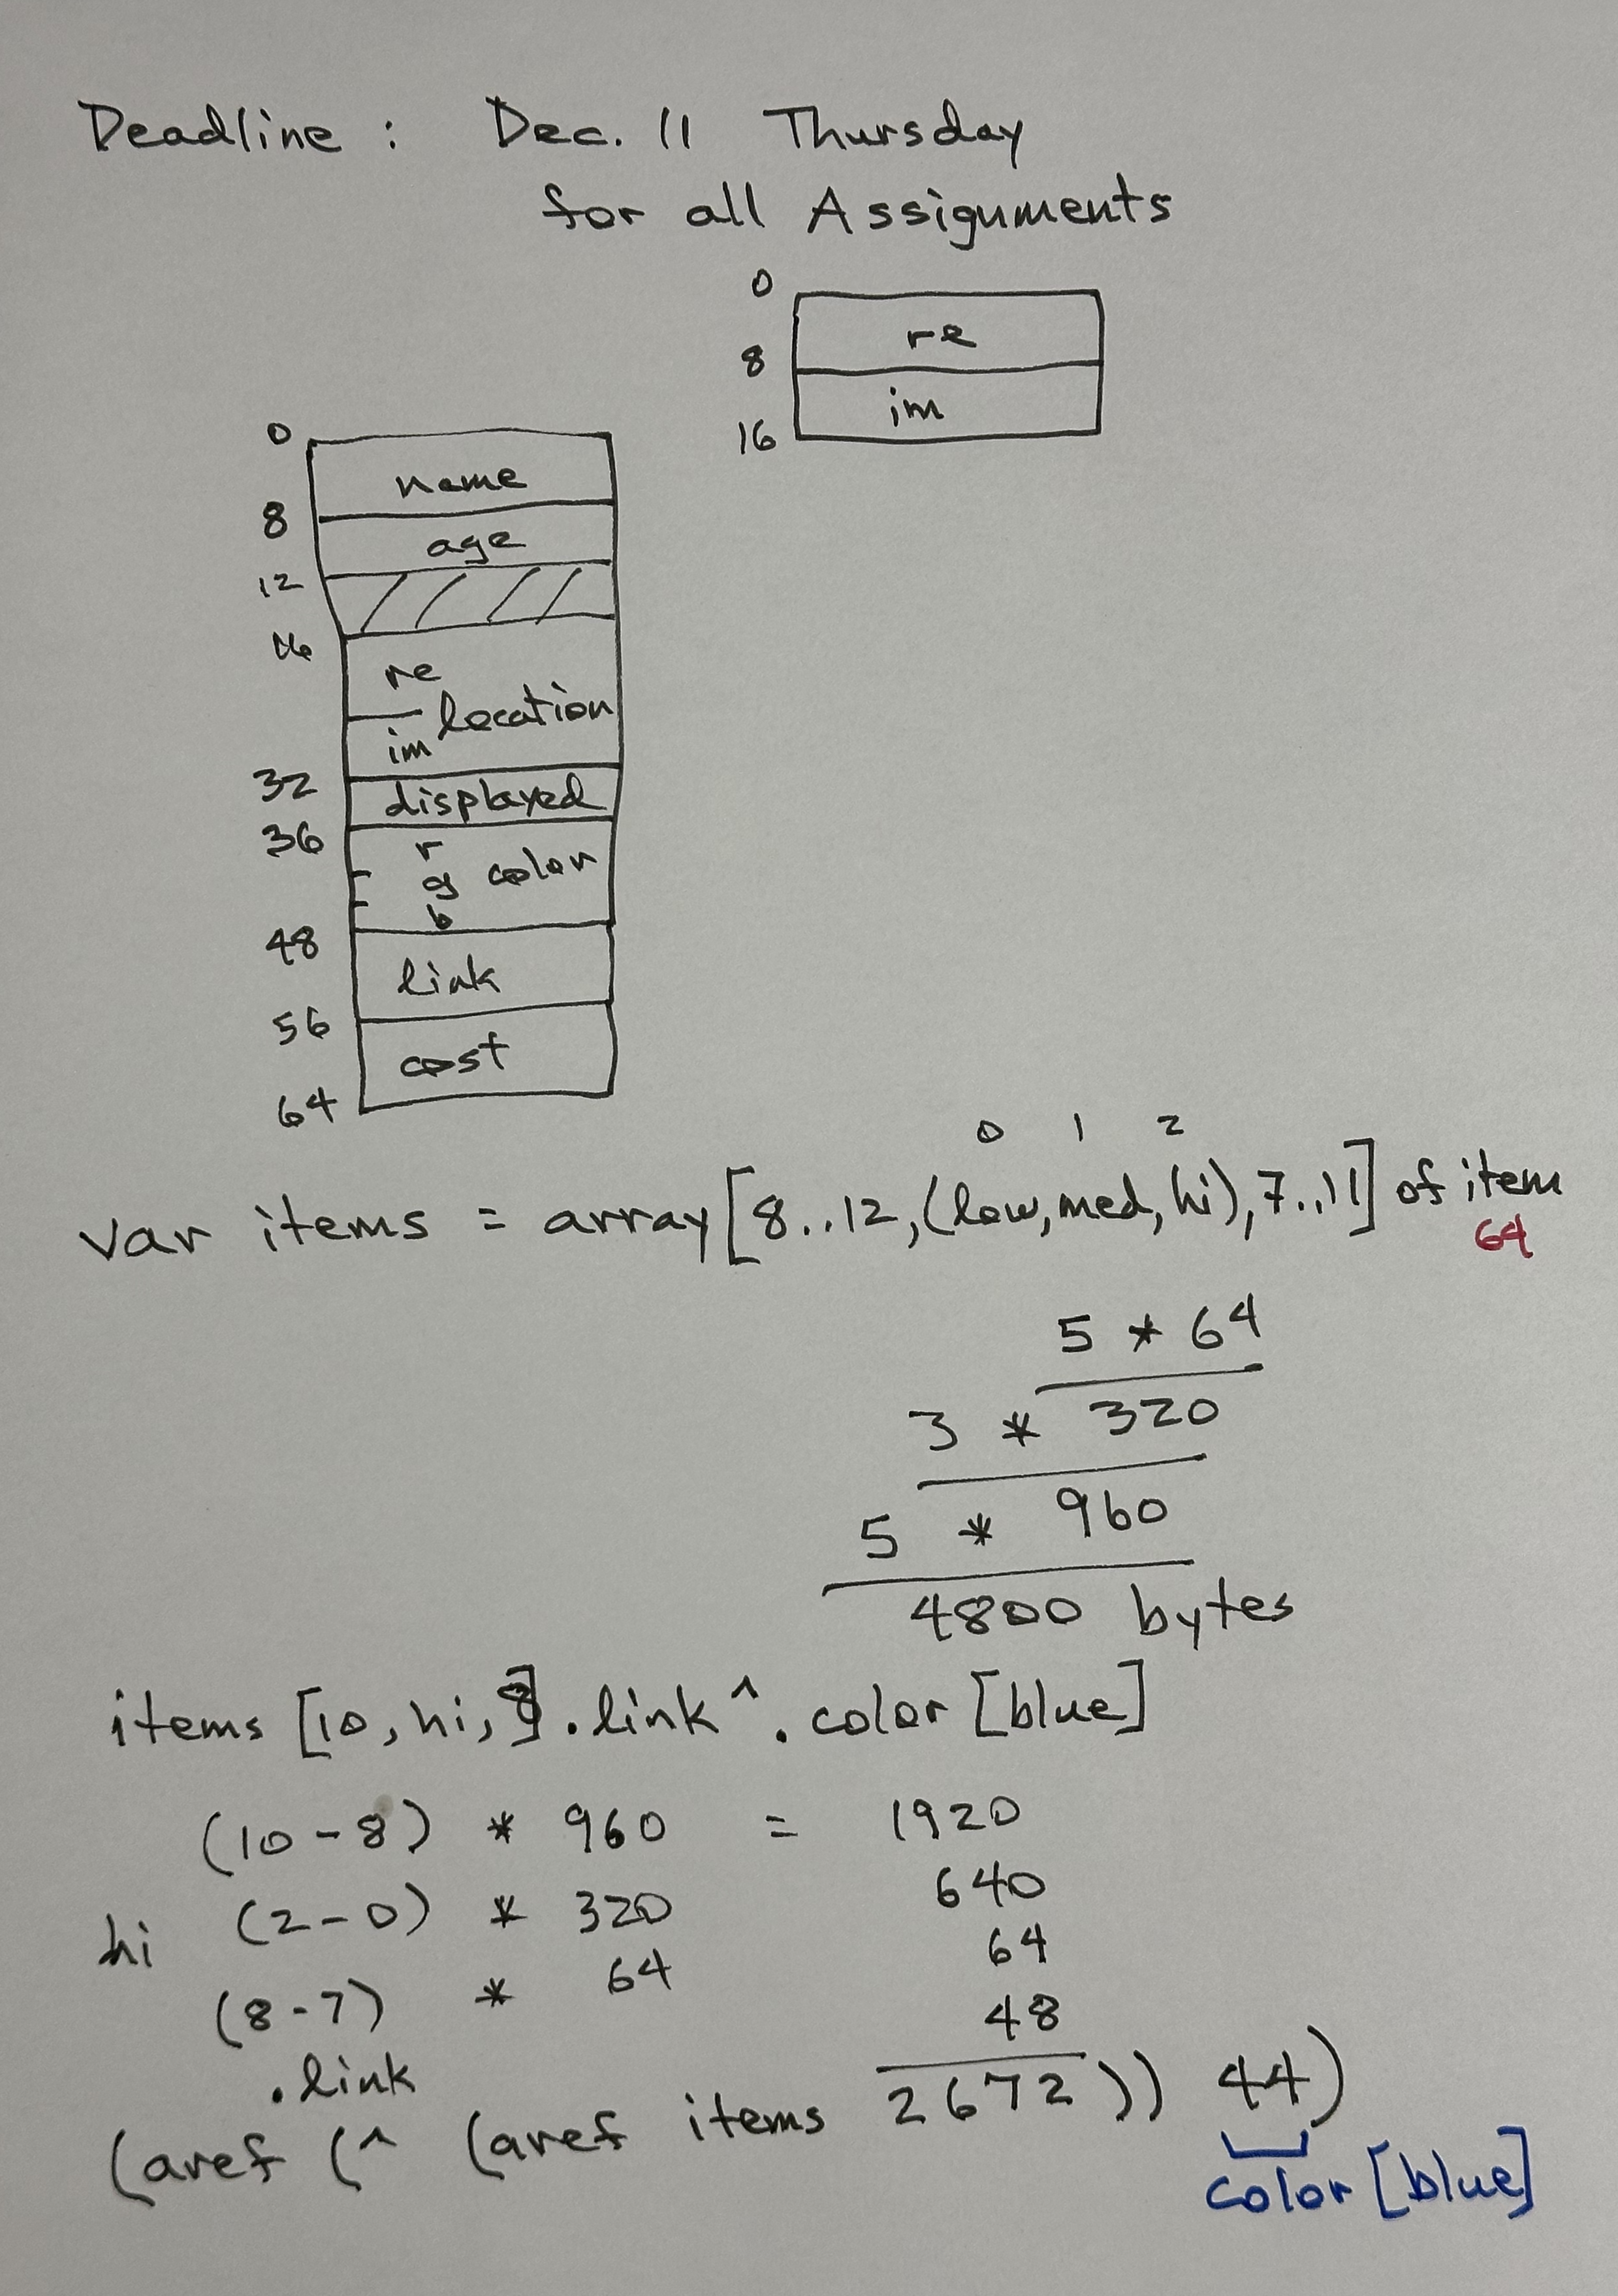 Deadline : Dec. 11 Thursday
for all Assignments
0
re
8
im
16
0
name
8
age
12
16
re
location
im
32
displayed
36
r
g color
b
48
link
56
cost
64
0 1 2
var items = array[8..12,(low,med,hi),7..11] of item
64
5 * 64
3 * 320
5 * 960
4800 bytes
items [10,hi,8].link^.color[blue]
(10-8) * 960 = 1920
hi (2-0) * 320 640
(8-7) * 64 64
.link 48
(aref (^ (aref items 2672)) 44)
color[blue]